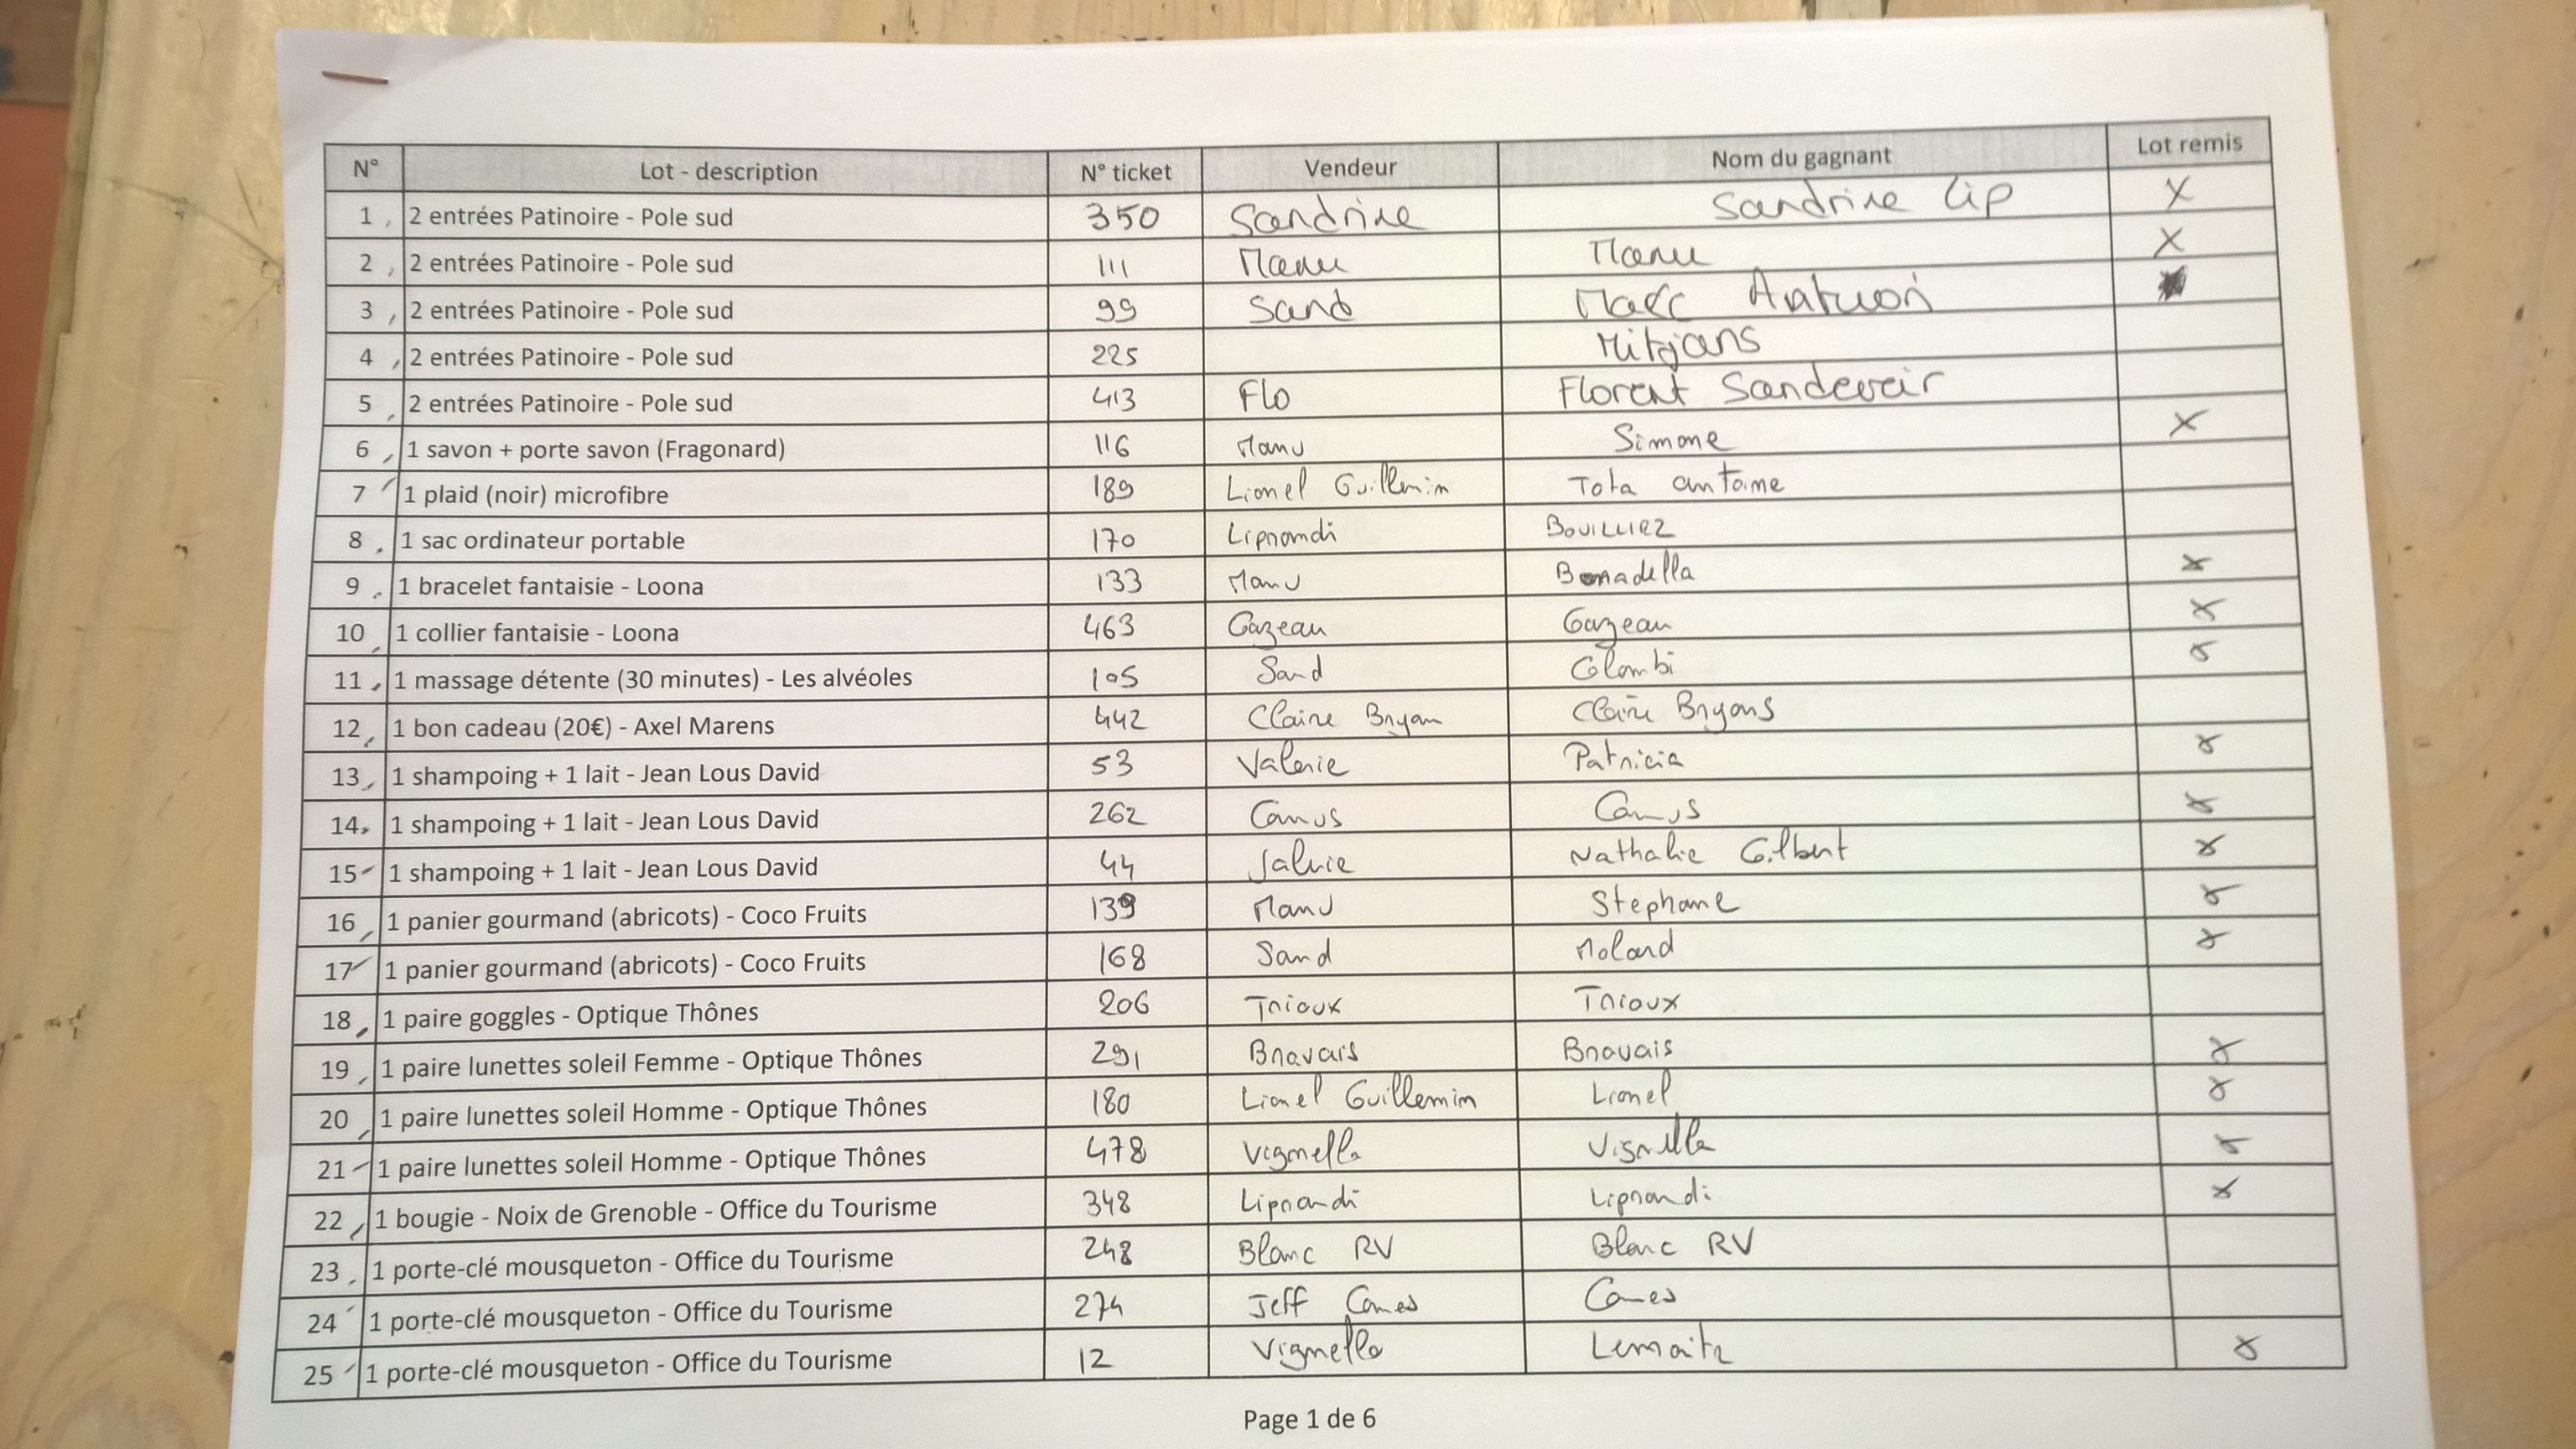 N° Lot - description N° ticket Vendeur Nom du gagnant Lot remis
1 2 entrées Patinoire - Pole sud 350 Sandrine Sandrine Lip X
2 2 entrées Patinoire - Pole sud 111 Manu Manu X
3 2 entrées Patinoire - Pole sud 99 Sand Marc
4 2 entrées Patinoire - Pole sud 225 Mitjans
5 2 entrées Patinoire - Pole sud 413 Flo Florent
6 1 savon + porte savon (Fragonard) 116 Manu Simone X
7 1 plaid (noir) microfibre 189 Lionel Guillemin Tota antoine
8 1 sac ordinateur portable 170 Liprandi BOUILLIEZ
9 1 bracelet fantaisie - Loona 133 Manu Bonadella X
10 1 collier fantaisie - Loona 463 Gazeau Gazeau X
11 1 massage détente (30 minutes) - Les alvéoles 105 Sand Colombi X
12 1 bon cadeau (20€) - Axel Marens 442 Claire Bryan Claire Bryans
13 1 shampoing + 1 lait - Jean Lous David 53 Valerie Patricia X
14 1 shampoing + 1 lait - Jean Lous David 262 Camus Camus X
15 1 shampoing + 1 lait - Jean Lous David 44 Nathalie Gilbert X
16 1 panier gourmand (abricots) - Coco Fruits 139 Manu Stephane X
17 1 panier gourmand (abricots) - Coco Fruits 168 Sand Molard X
18 1 paire goggles - Optique Thônes 206 Trioux Trioux
19 1 paire lunettes soleil Femme - Optique Thônes 291 Bravais Bravais X
20 1 paire lunettes soleil Homme - Optique Thônes 180 Lionel Guillemin Lionel X
21 1 paire lunettes soleil Homme - Optique Thônes 478 Vignella Vignella X
22 1 bougie - Noix de Grenoble - Office du Tourisme 348 Liprandi Liprandi X
23 1 porte-clé mousqueton - Office du Tourisme 248 Blanc RV Blanc RV
24 1 porte-clé mousqueton - Office du Tourisme 274 Jeff Comes Comes
25 1 porte-clé mousqueton - Office du Tourisme 12 Vignella Lemaitr X
Page 1 de 6